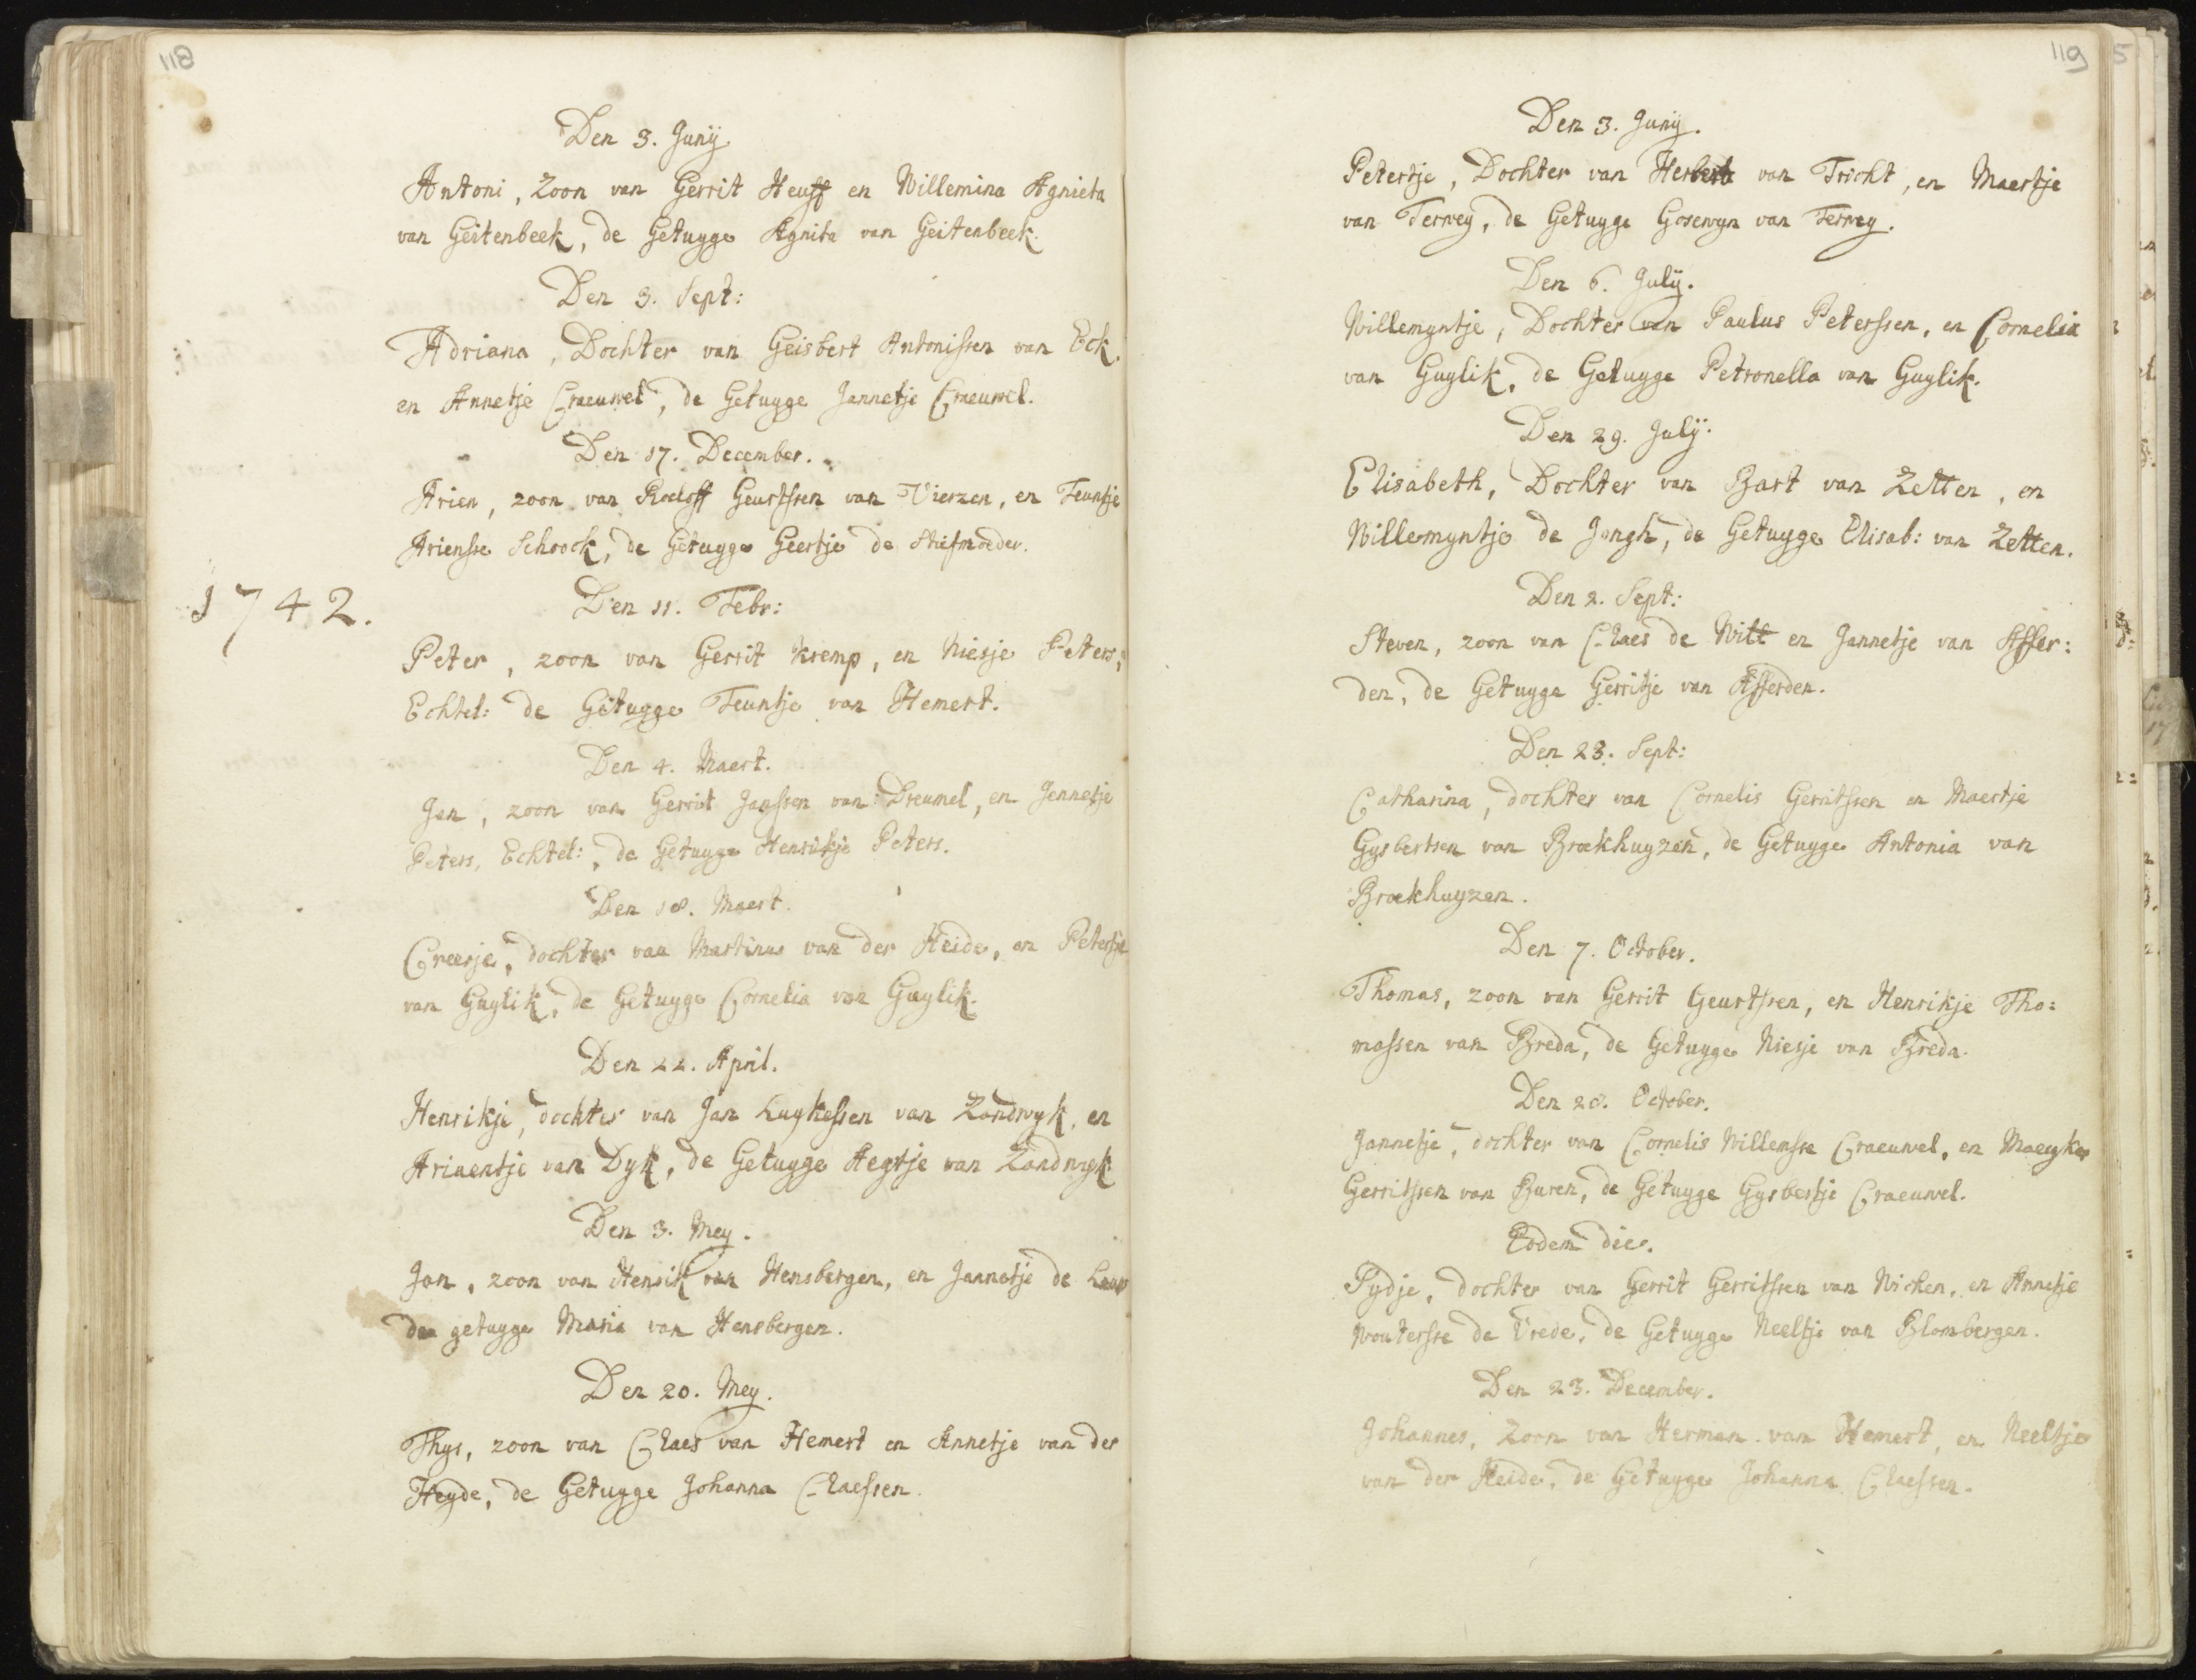 118
Den 3. Junij
Antoni, Zoon van Gerrit Heuff en Willemina Agnieta
van Geitenbeek, de Getuyge Agnita van Geitenbeek.
Den 3. Sept:
Adriana, Dochter van Geisbert Antonissen van Eck,
en Annetje Craeuwel, de Getuyge Jannetje Craeuwel.
Den 17. December.
Arien, zoon van Roeloff Geurtssen van Vierzen, en Teuntje
Ariensse Schoock, de Getuyge Geertje de Stiefmoeder.
1742.
Den 11. Febr:
Peter, zoon van Gerrit Kremp, en Niesje Peters,
Echtel: de Getuyge Teuntje van Hemert.
Den 4. Maert.
Jan, zoon van Gerrit Janssen van Dreumel, en Jennetje
Peters, Echtel:, de Getuyge Henrikje Peters.
Den 18. Maert.
Creesje, dochter van Martinus van der Heide, en Petertje
van Guylik, de Getuyge Cornelia van Guylik.
Den 22. April.
Henrikje, dochter van Jan Luykessen van Zandwyk, en
Ariaentje van Dyk, de Getuyge Aegtje van Zandwyk
Den 3. Mey.
Jan, zoon van Henrik van Hensbergen, en Jannetje de Leeuw
de getuyge Maria van Hensbergen.
Den 20. Mey.
Thys, zoon van Claes van Hemert en Annetje van der
Heyde, de Getuyge Johanna Claessen.
119
Den 3. Junij.
Petertje, Dochter van Herbert van Tricht, en Maertje
van Terwey, de Getuyge Gosewyn van Terwey.
Den 6. July.
Willemyntje, Dochter van Paulus Peterssen, en Cornelia
van Guylik, de Getuyge Petronella van Guylik.
Den 29. July.
Elisabeth, Dochter van Bart van Zetten, en
Willemyntje de Jongh, de Getuyge Elisab: van Zetten.
Den 2. Sept:
Steven, zoon van Claes de Witt en Jannetje van Affer:
den, de Getuyge Gerritje van Afferden.
Den 23. Sept:
Catharina, dochter van Cornelis Gerritssen en Maertje
Gysbertsen van Broekhuyzen, de Getuyge Antonia van
Broekhuyzen.
Den 7. October.
Thomas, zoon van Gerrit Geurtssen, en Henrikje Tho:
massen van Breda, de Getuyge Niesje van Breda.
Den 28. October.
Jannetje, dochter van Cornelis Willemsse Craeuwel, en Maeyke
Gerritssen van Buren, de Getuyge Gysbertje Craeuwel.
Eodem die.
Pydje, dochter van Gerrit Gerritssen van Wichen, en Annetje
Woutersse de Vrede, de Getuyge Neeltje van Blombergen.
Den 23. December.
Johannes, Zoon van Herman van Hemert, en Neeltje
van der Heide, de Getuyge Johanna Claessen.